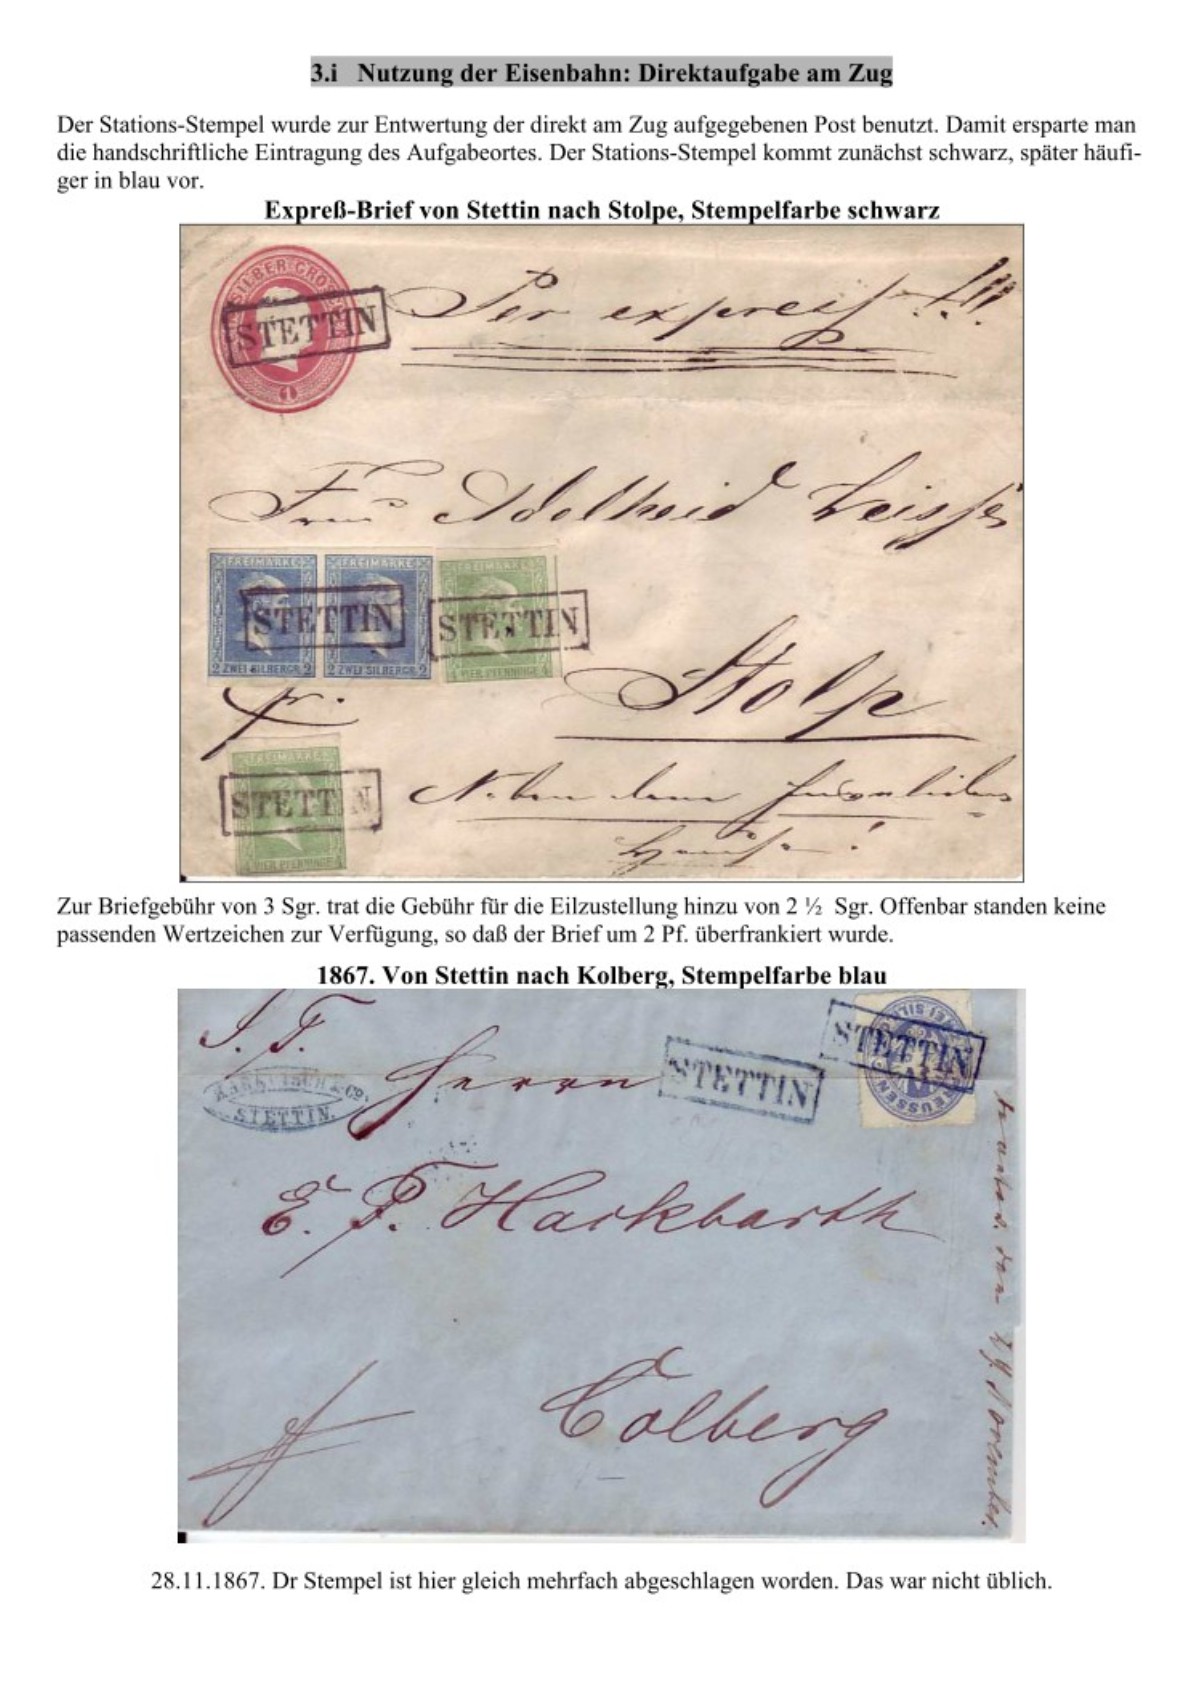 3.i Nutzung der Eisenbahn: Direktaufgabe am Zug
Der Stations-Stempel wurde zur Entwertung der direkt am Zug aufgegebenen Post benutzt. Damit ersparte man
die handschriftliche Eintragung des Aufgabeortes. Der Stations-Stempel kommt zunächst schwarz, später häufi-
ger in blau vor.
Expreß-Brief von Stettin nach Stolpe, Stempelfarbe schwarz
SILBER GROS
STETTIN
1
Per expreß !!!
Frau Adelheid
FREIMARKE
FREIMARKE
FREIMARKE
STETTIN
STETTIN
2 ZWEI SILBERGR. 2
2 ZWEI SILBERGR. 2
4 VIER PFENNINGE 4
Stolp
fr.
FREIMARKE
STETTIN
VIER PFENNINGE 4
Neben dem
Hause!
Zur Briefgebühr von 3 Sgr. trat die Gebühr für die Eilzustellung hinzu von 2 ½ Sgr. Offenbar standen keine
passenden Wertzeichen zur Verfügung, so daß der Brief um 2 Pf. überfrankiert wurde.
1867. Von Stettin nach Kolberg, Stempelfarbe blau
STETTIN
STETTIN
PREUSSEN
& Co.
STETTIN.
Herrn
E. F. Hackbarth
Colberg
November.
28.11.1867. Dr Stempel ist hier gleich mehrfach abgeschlagen worden. Das war nicht üblich.